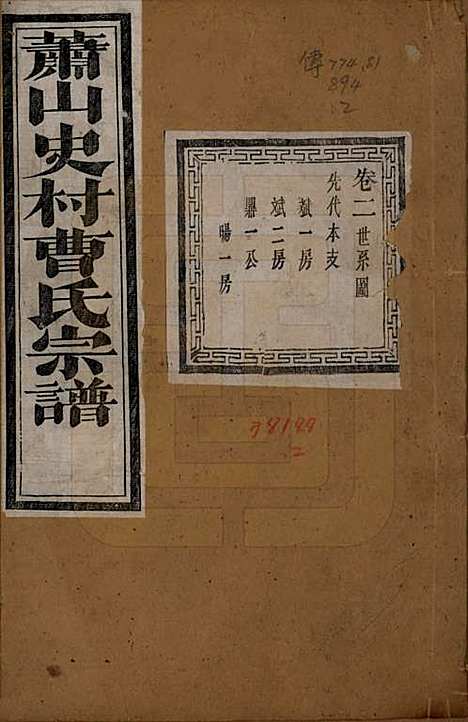 蕭山史村曹氏宗譜
卷二世系圖
先代本支
斌一房
斌二房
器一公
暘一房
傳774.81
894
:2
98199
2